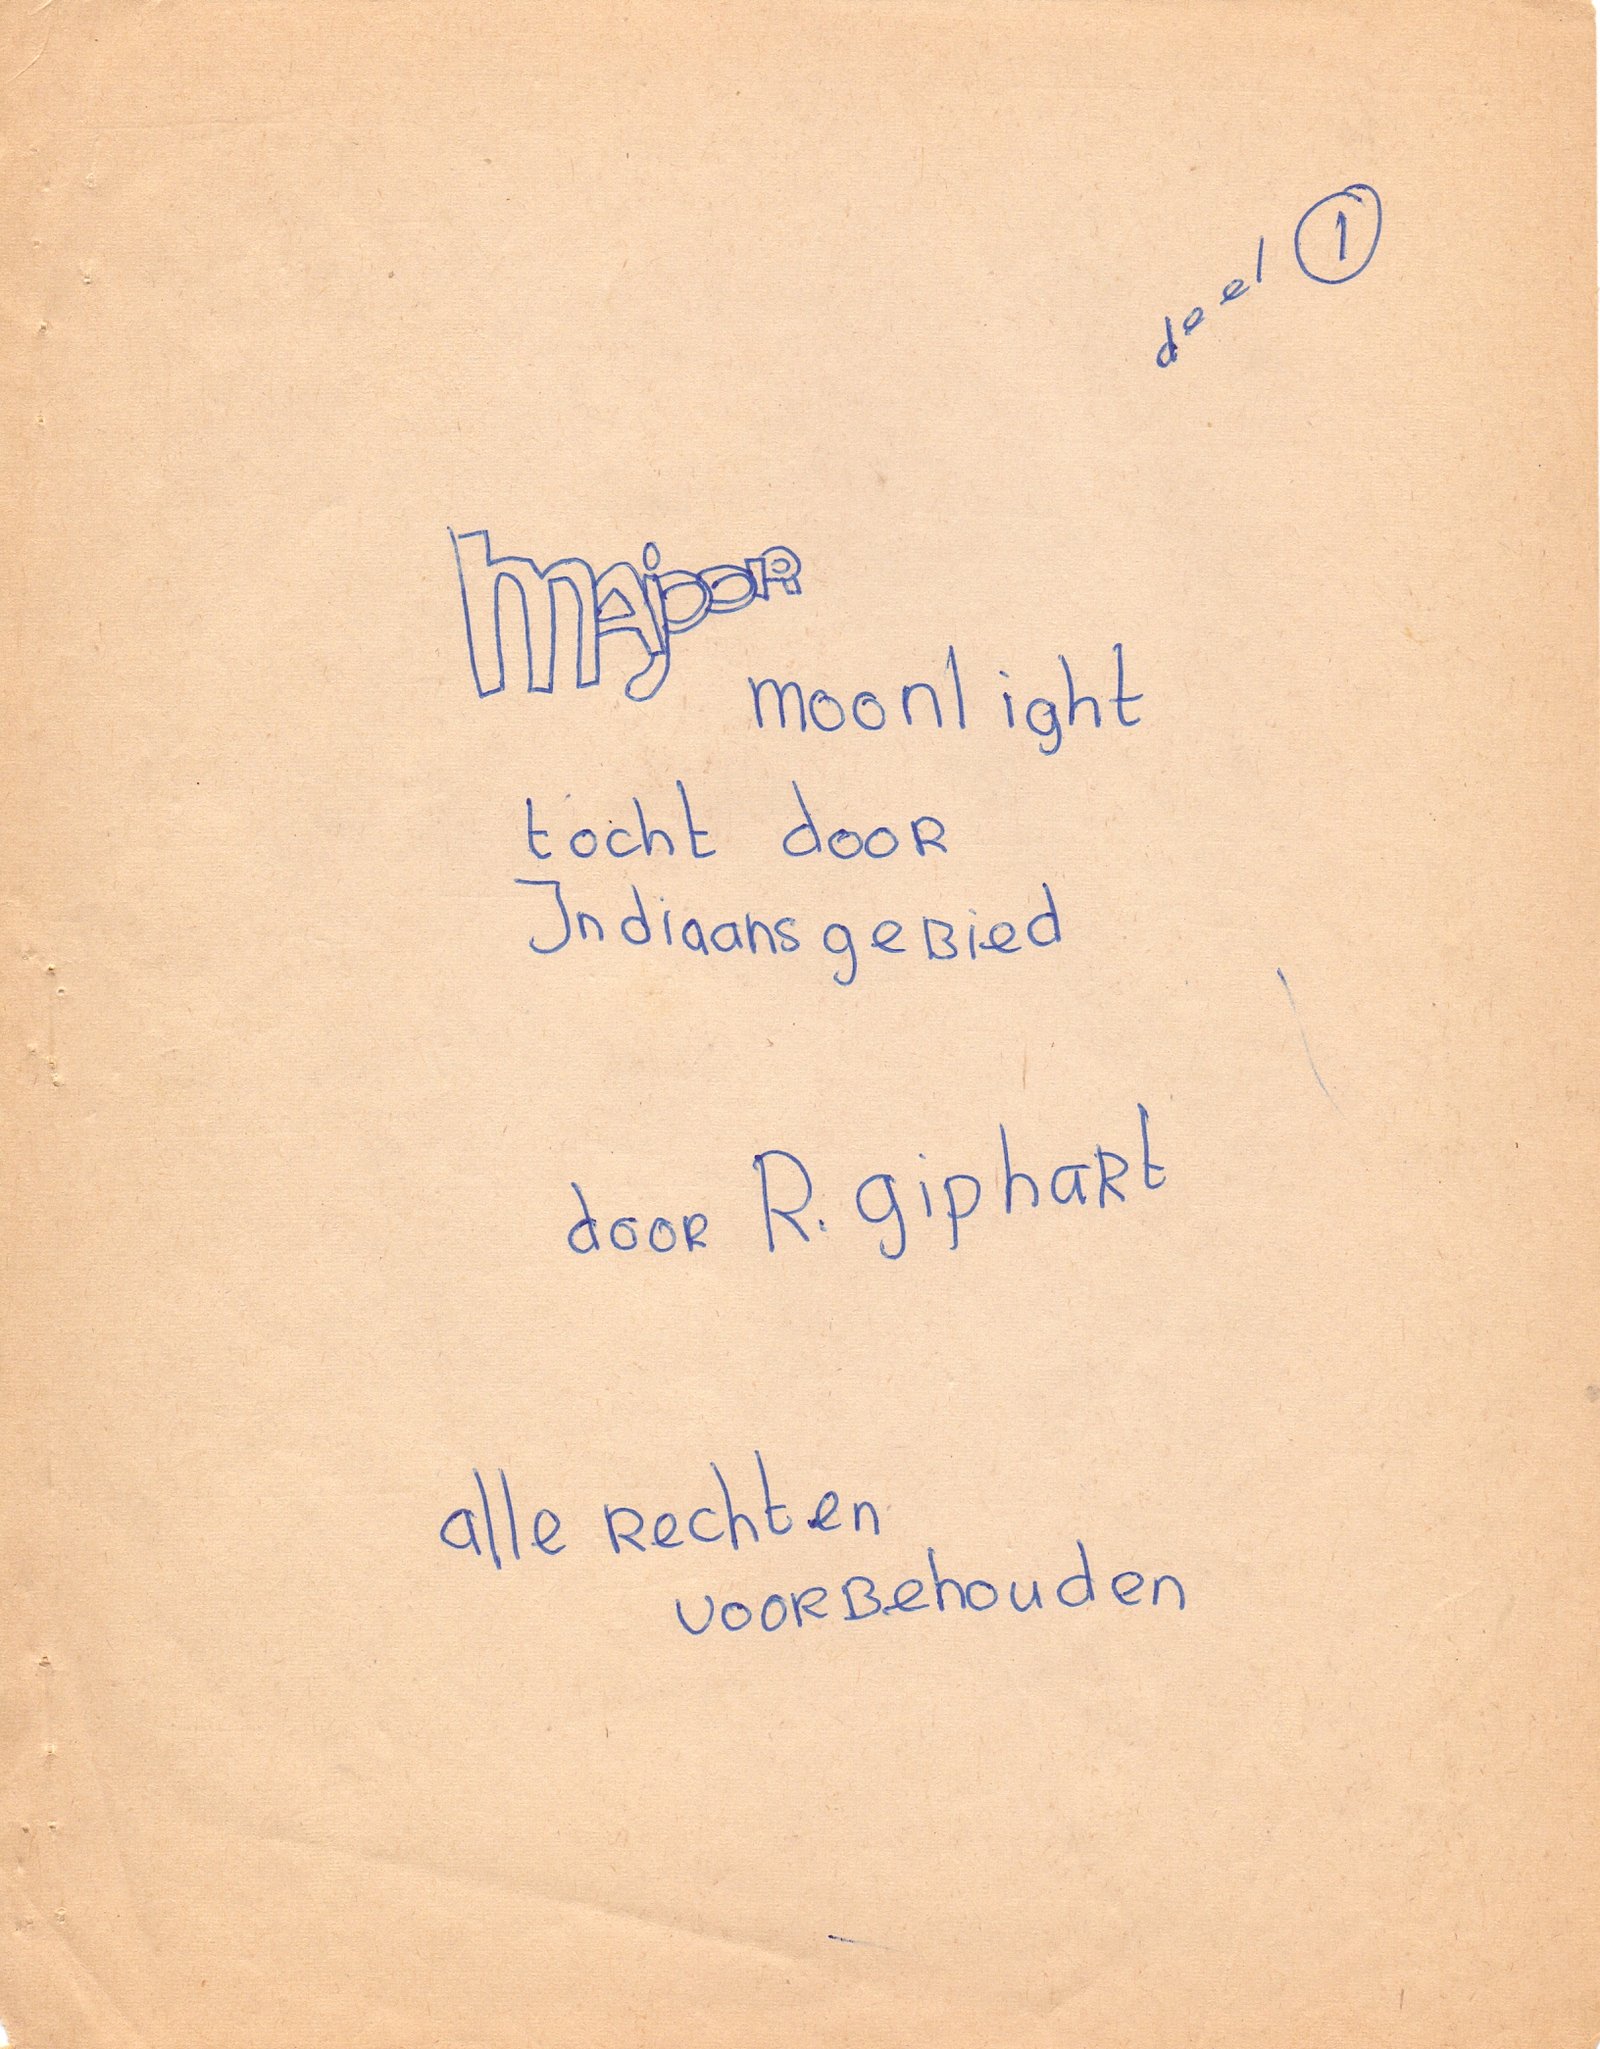 deel 1
MAjOOR
moonlight
tocht dooR
IndiaansgeBied
dooR R. giphaRt
alle Rechten
vooRBehouden